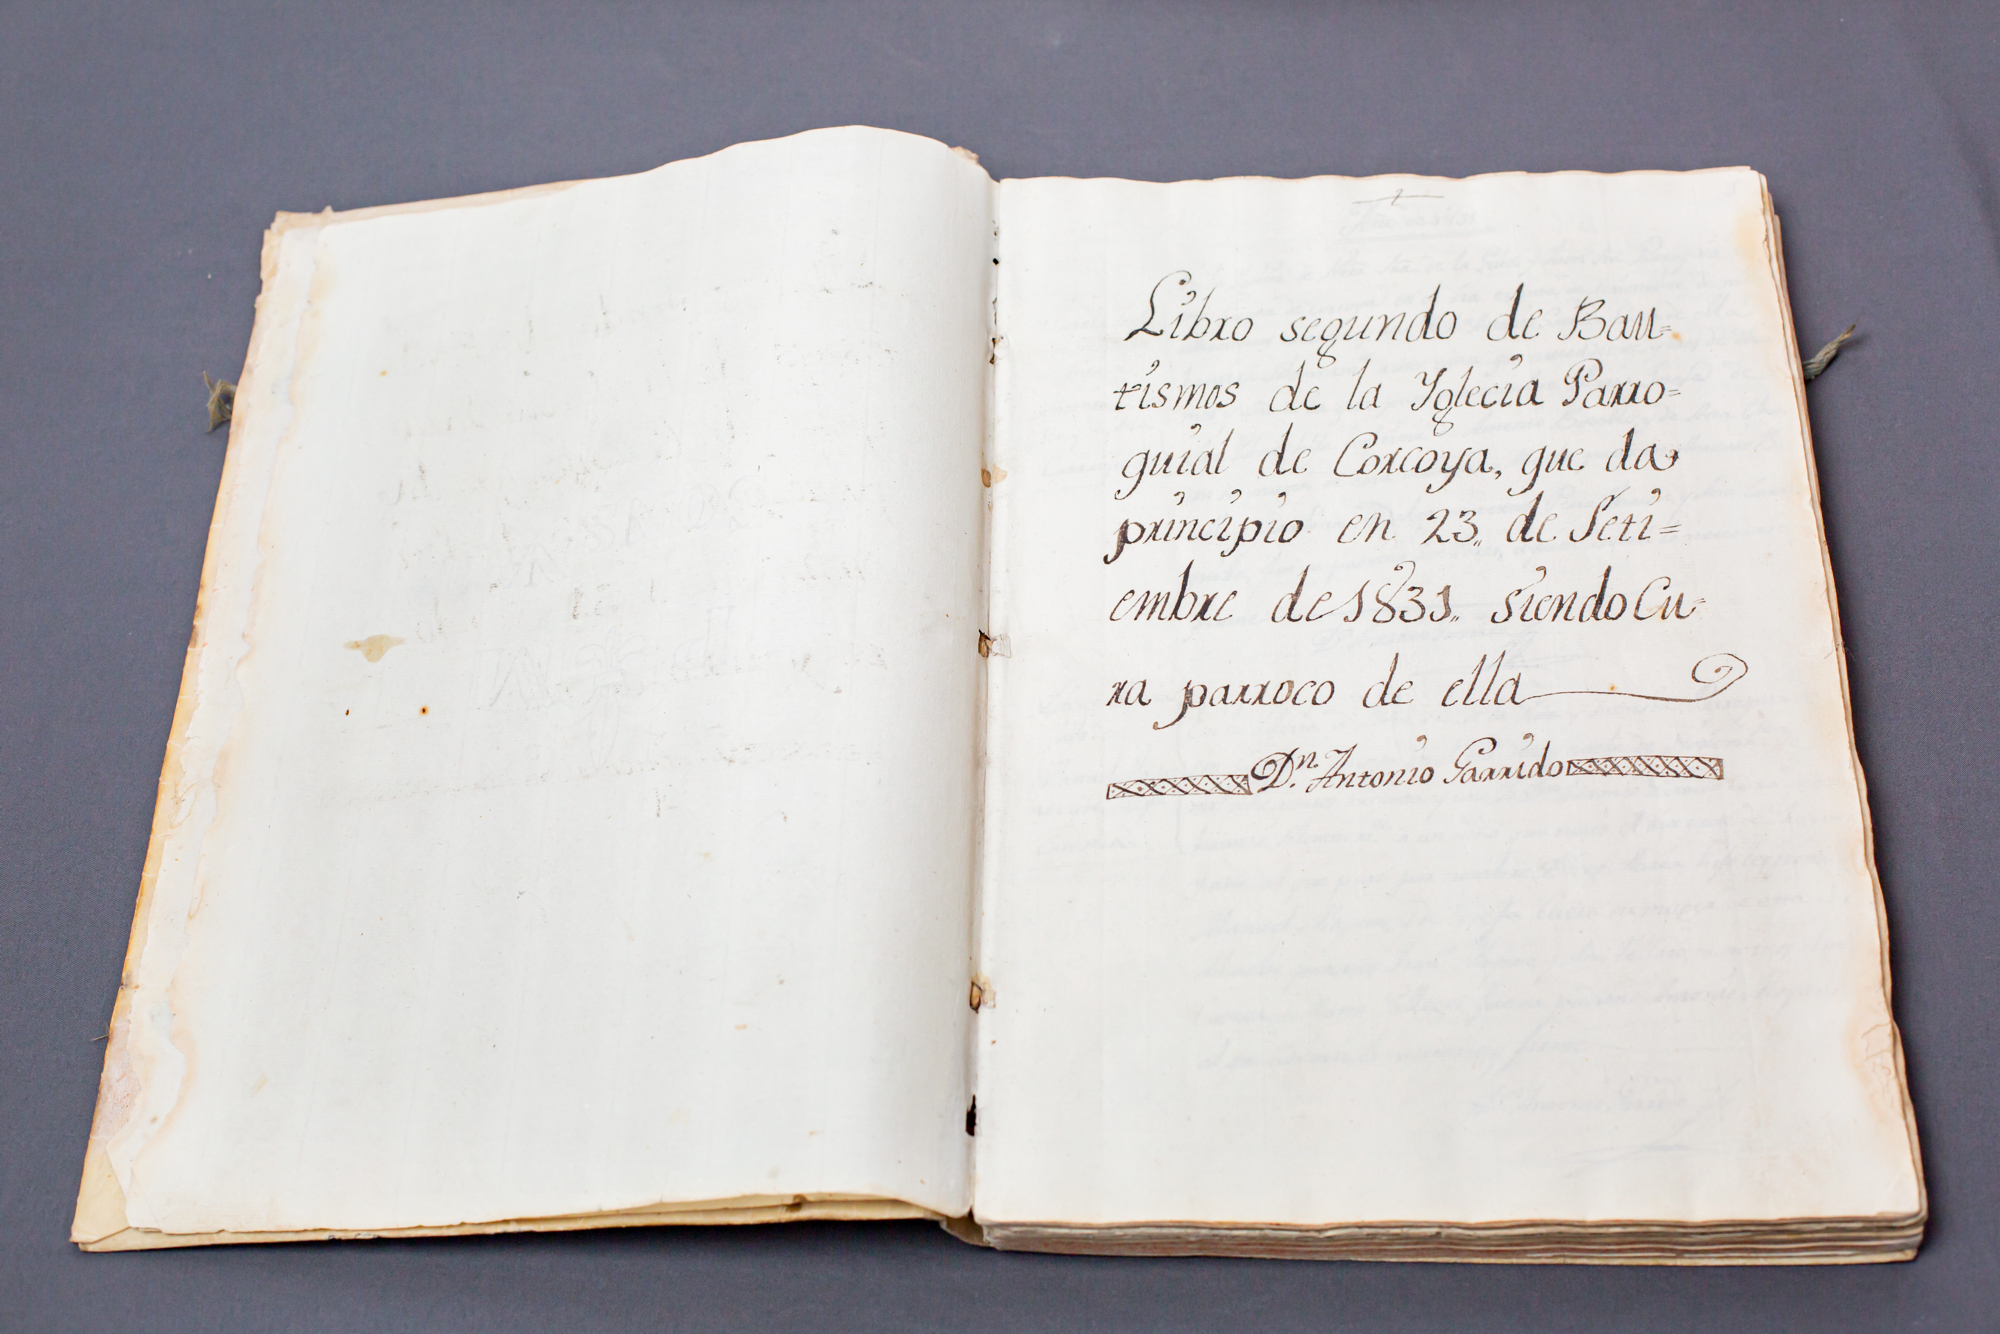 Libro segundo de Bau=
tismos de la Yglecia Parro=
quial de Corcoya, que da
principio en 23,, de Seti=
embre de 1831,, siendo Cu=
ra parroco de ella
Dn. Antonio Garrido